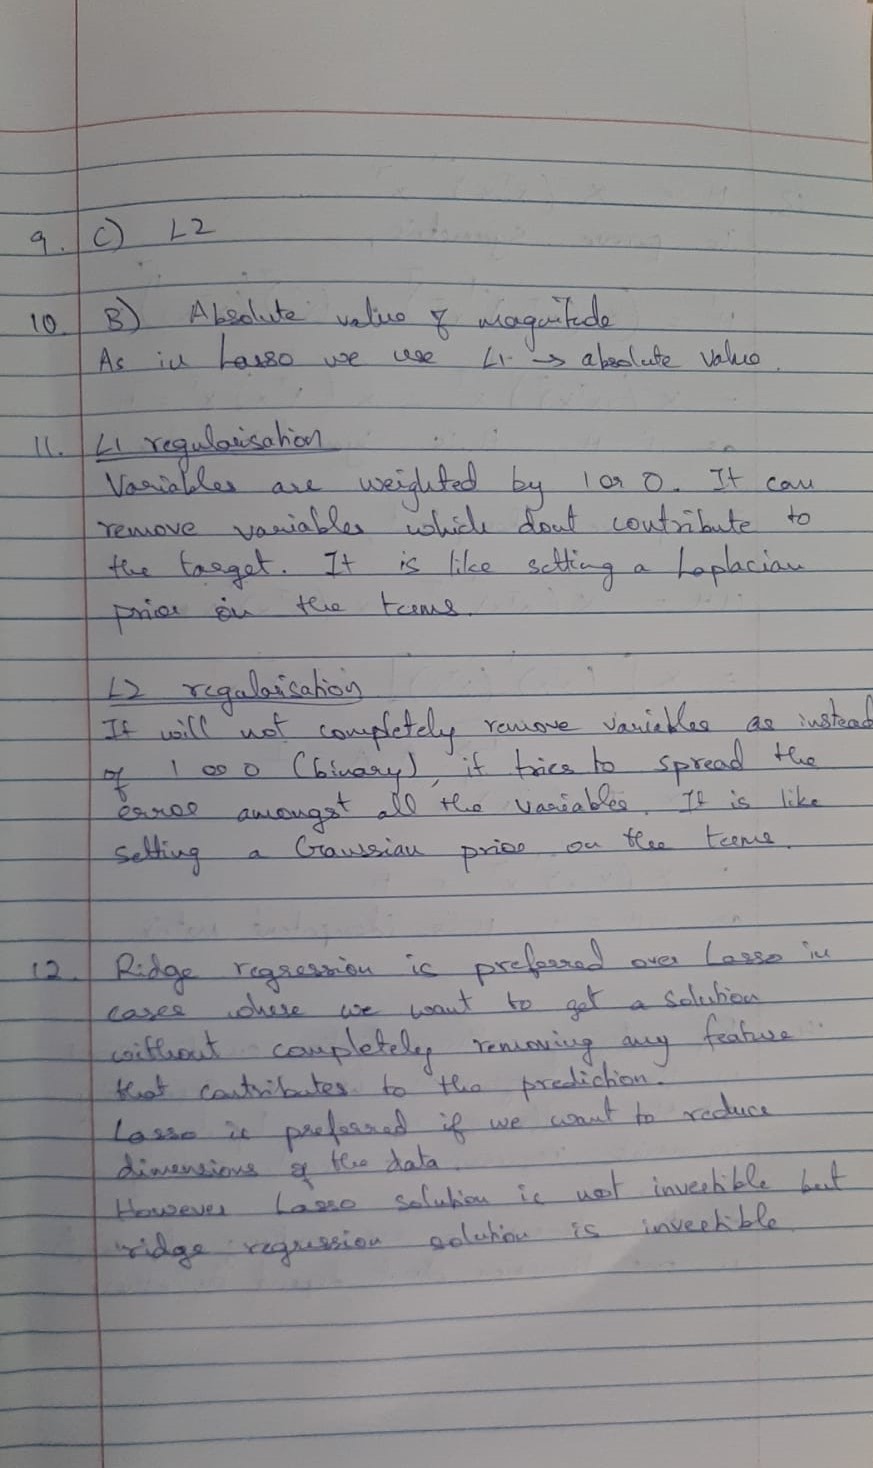 9. C) L2
10. B) Absolute value of magnitude
As in Lasso we use L1 → absolute value.
11. L1 regularisation
Variables are weighted by 1 or 0. It can
remove variables which dont contribute to
the target. It is like setting a Laplacian
prior on the terms.
L2 regularisation
It will not completely remove variables as instead
of 1 or 0 (binary), it tries to spread the
error amongst all the variables. It is like
setting a Gaussian prior on the terms.
12. Ridge regression is preferred over Lasso in
cases where we want to get a solution
without completely removing any feature
that contributes to the prediction.
Lasso is preferred if we want to reduce
dimensions of the data.
However Lasso solution is not invertible but
ridge regression solution is invertible